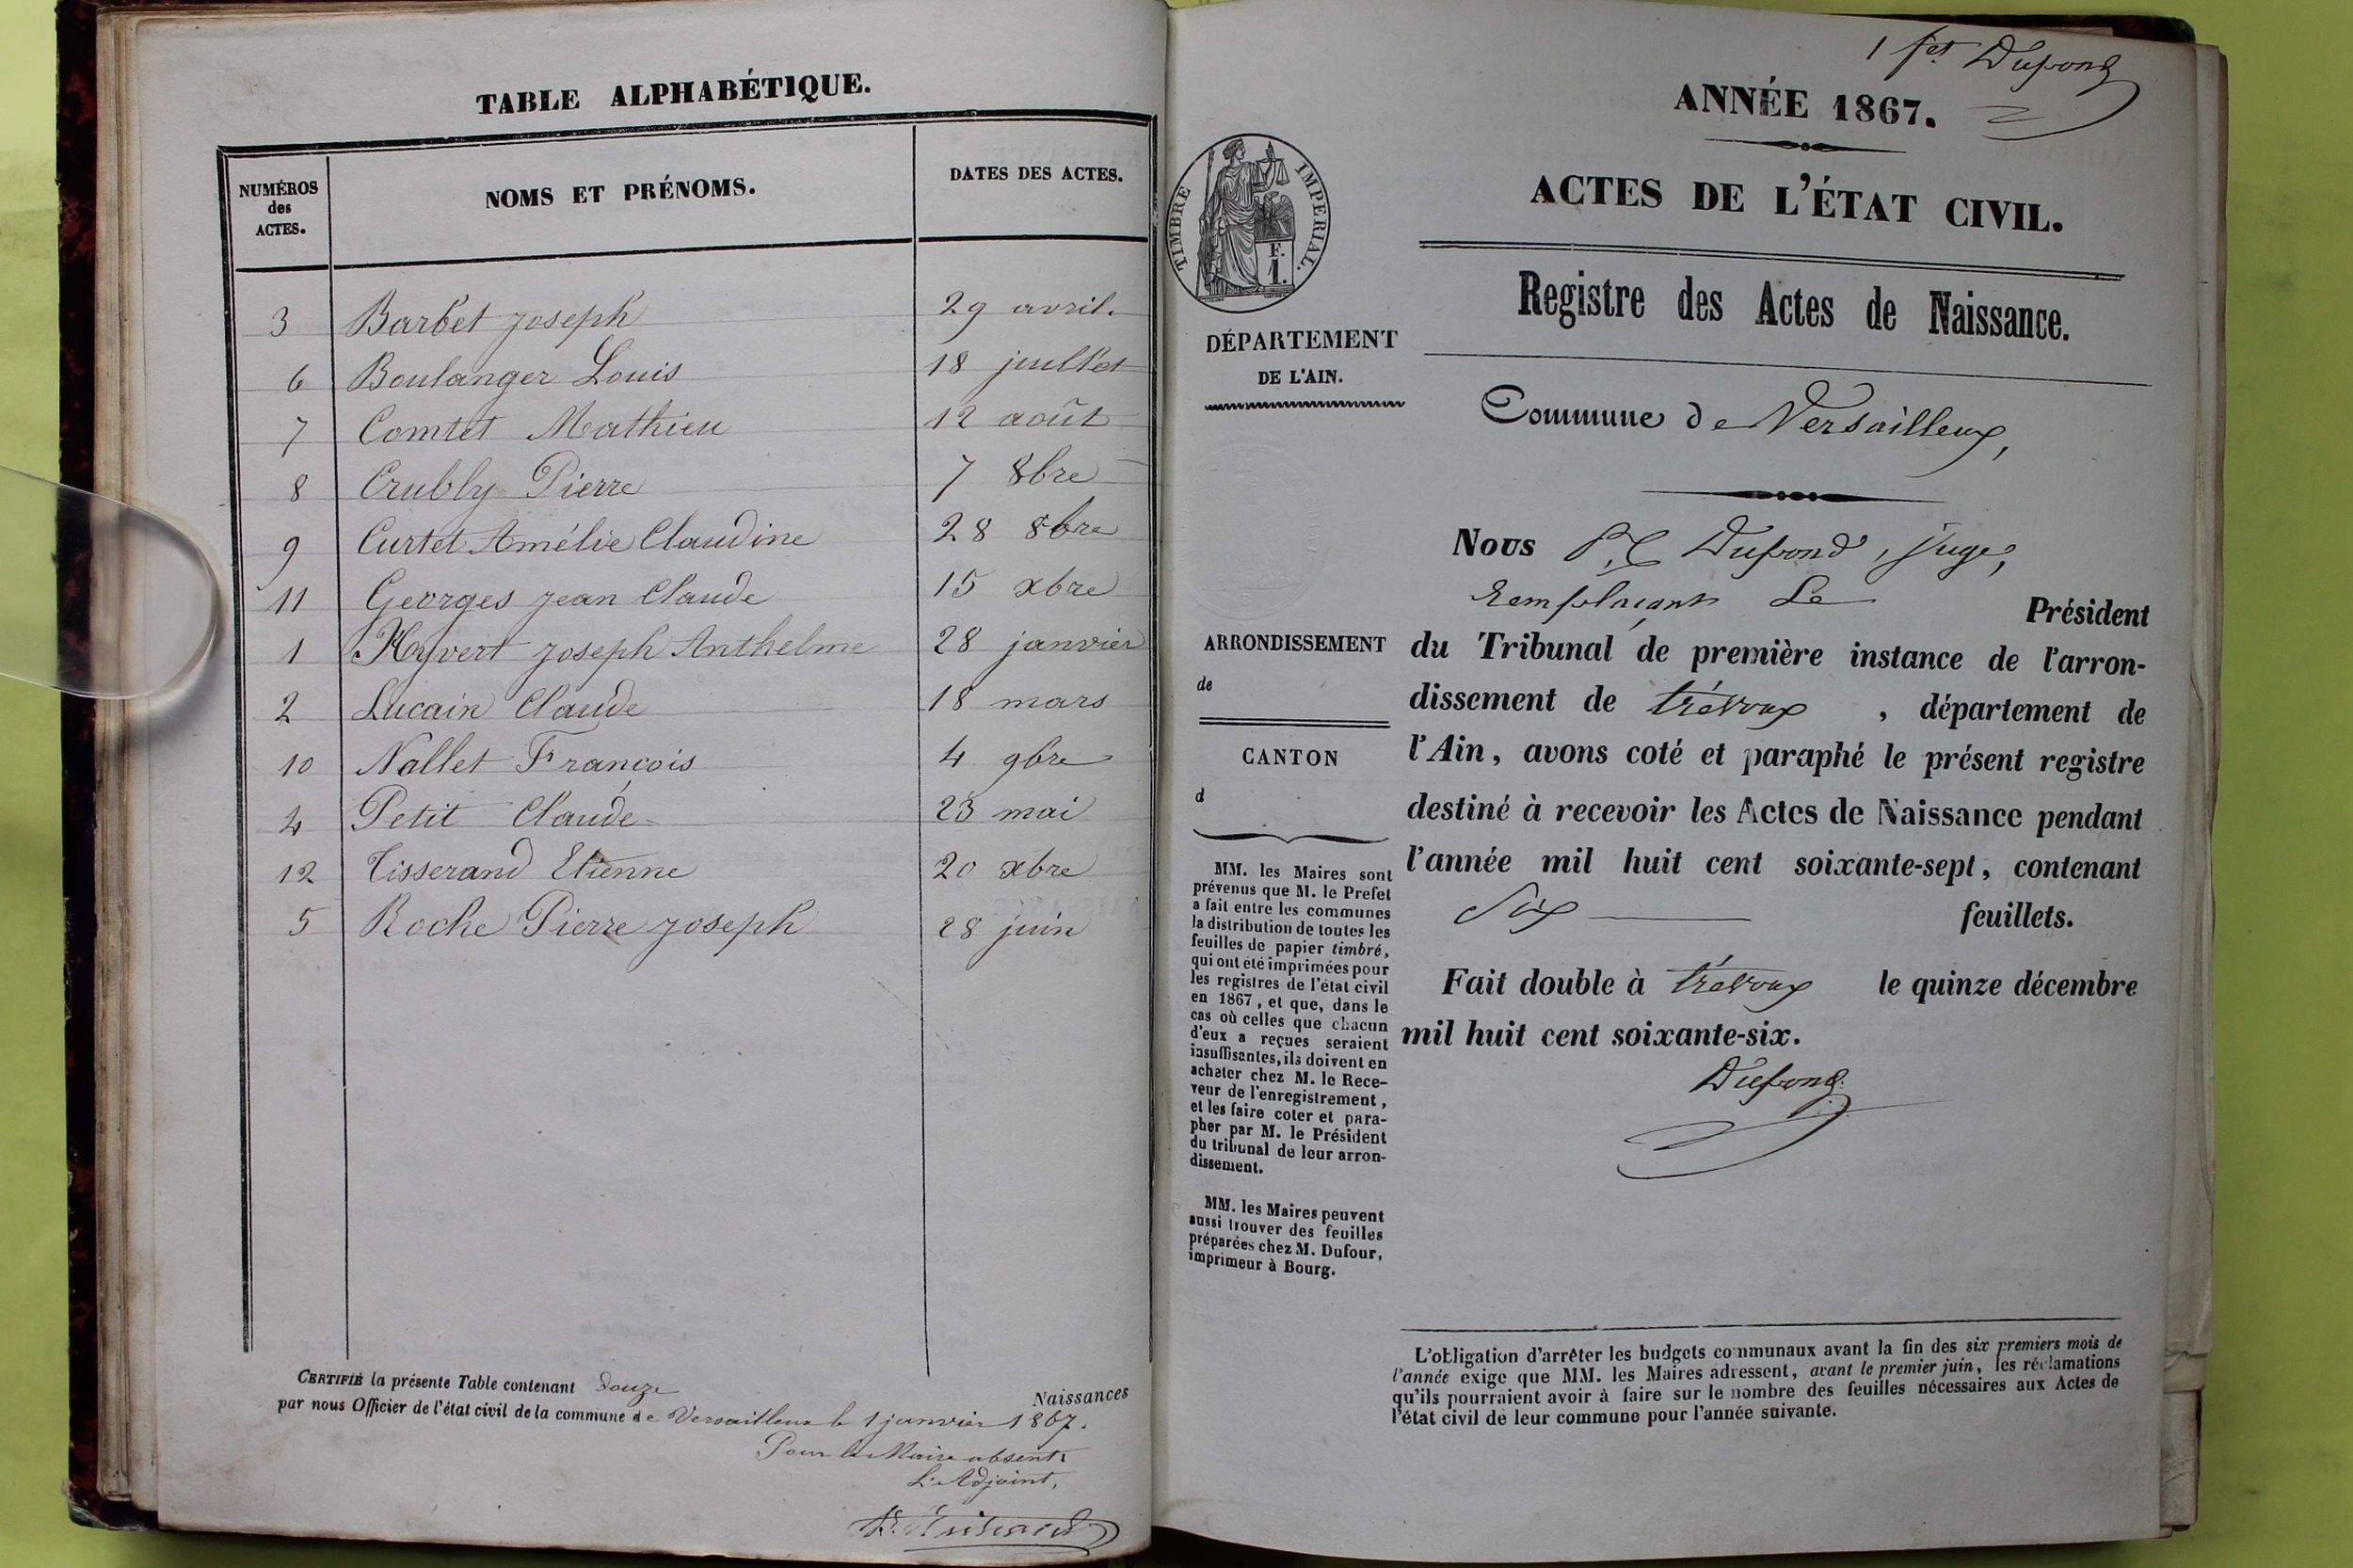 TABLE ALPHABÉTIQUE.
NUMÉROS
des
ACTES.
NOMS ET PRÉNOMS.
DATES DES ACTES.
3 Barbet joseph 29 avril.
6 Boulanger Louis 18 juillet
7 Comtet Mathieu 12 août
8 Crubly Pierre 7 8bre
9 Curtet Amélie Claudine 28 8bre
11 Georges jean Claude 15 xbre
1 Hyvert joseph Anthelme 28 janvier
2 Lucain Claude 18 mars
10 Nallet François 4 9bre
4 Petit Claude 23 mai
12 Tisserand Etienne 20 xbre
5 Roche Pierre joseph 28 juin
CERTIFIÉ la présente Table contenant douze Naissances
par nous Officier de l'état civil de la commune de Versailleux le 1 janvier 1867.
Pour le Maire absent
L'Adjoint,
1 fet Dupond
ANNÉE 1867.
ACTES DE L'ÉTAT CIVIL.
Registre des Actes de Naissance.
TIMBRE IMPÉRIAL.
F.
1.
DÉPARTEMENT
DE L'AIN.
Commune de Versailleux,
Nous P. C. Dupond, juge,
Remplaçant Le Président
du Tribunal de première instance de l'arron-
dissement de trévoux, département de
l'Ain, avons coté et paraphé le présent registre
destiné à recevoir les Actes de Naissance pendant
l'année mil huit cent soixante-sept, contenant
Six feuillets.
Fait double à trévoux le quinze décembre
mil huit cent soixante-six.
Dupond
ARRONDISSEMENT
de
CANTON
d
MM. les Maires sont
prévenus que M. le Préfet
a fait entre les communes
la distribution de toutes les
feuilles de papier timbré,
qui ont été imprimées pour
les registres de l'état civil
en 1867, et que, dans le
cas où celles que chacun
d'eux a reçues seraient
insuffisantes, ils doivent en
acheter chez M. le Rece-
veur de l'enregistrement,
et les faire coter et para-
pher par M. le Président
du tribunal de leur arron-
dissement.
MM. les Maires peuvent
aussi trouver des feuilles
préparées chez M. Dufour,
imprimeur à Bourg.
L'obligation d'arrêter les budgets communaux avant la fin des six premiers mois de
l'année exige que MM. les Maires adressent, avant le premier juin, les réclamations
qu'ils pourraient avoir à faire sur le nombre des feuilles nécessaires aux Actes de
l'état civil de leur commune pour l'année suivante.